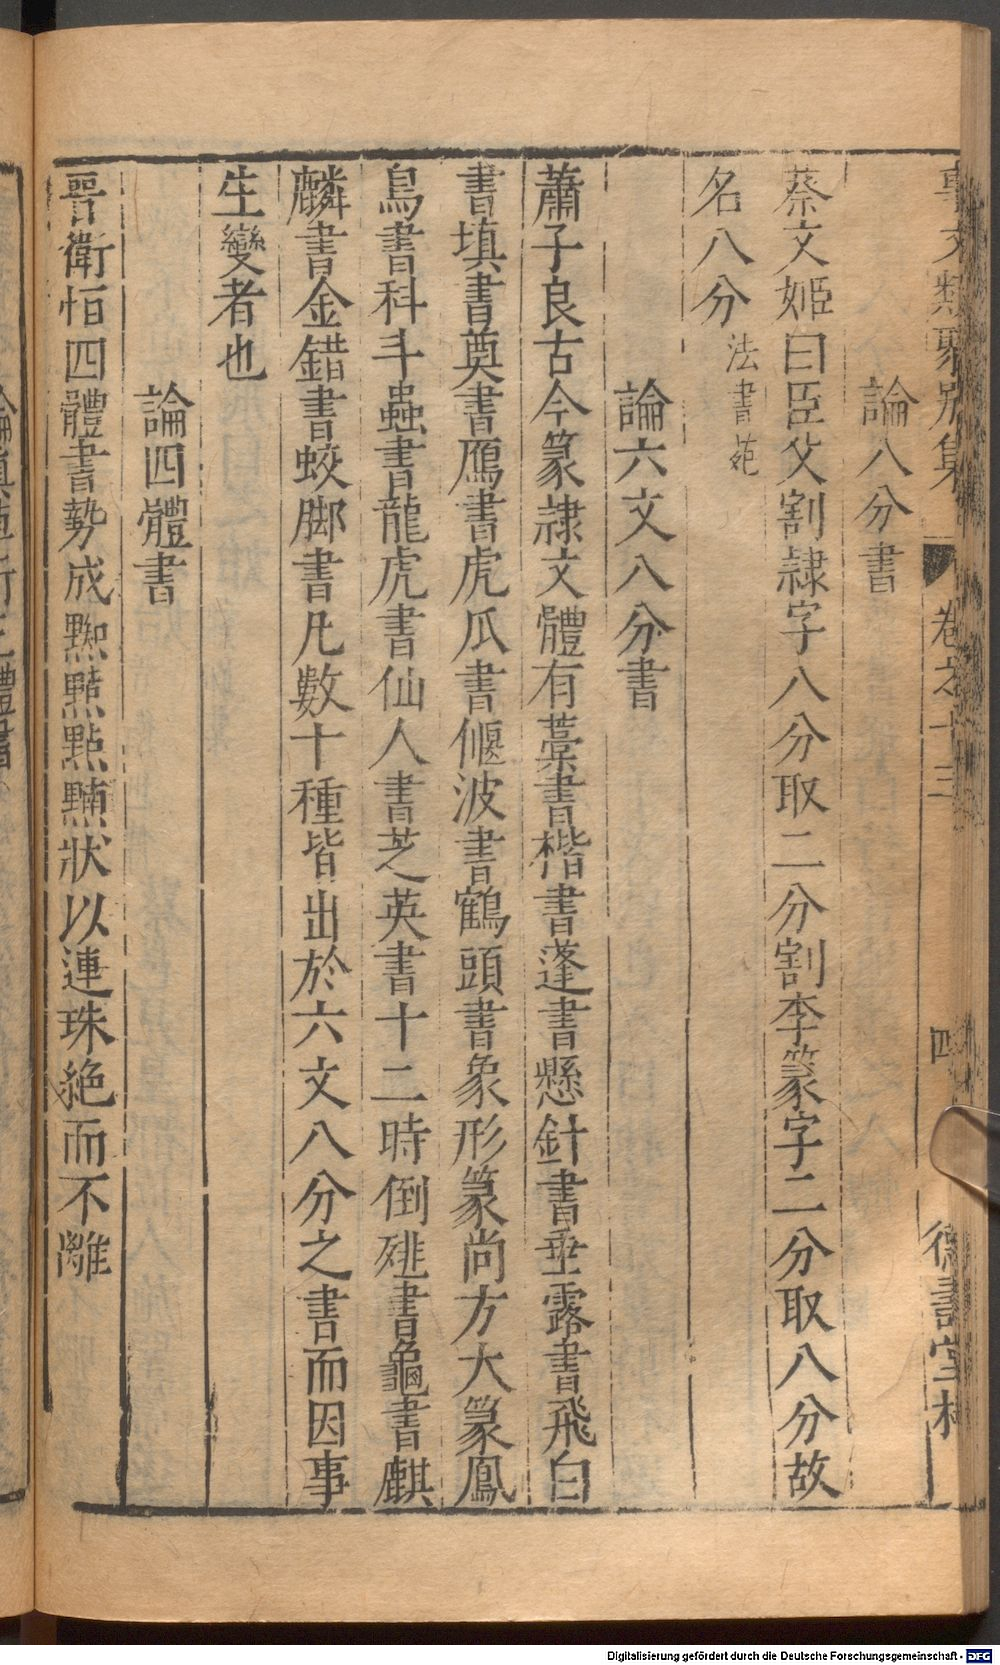 事文類聚別集 卷之十三 四 德壽堂梓
論八分書
蔡文姬曰臣父割隷字八分取二分割李篆字二分取八分故
名八分法書苑
論六文八分書
蕭子良古今篆隷文體有藁書楷書蓬書懸針書垂露書飛白
書填書奠書鴈書虎爪書偃波書鶴頭書象形篆尚方大篆鳳
鳥書科斗蟲書龍虎書仙人書芝英書十二時倒薤書龜書麒
麟書金錯書蛟脚書凡數十種皆出於六文八分之書而因事
生變者也
論四體書
晉衛恒四體書勢成點點點點狀以連珠絶而不離
Digitalisierung gefördert durch die Deutsche Forschungsgemeinschaft - DFG